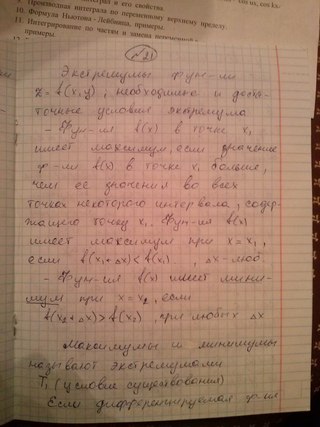 9. Производная интеграла по переменному верхнему пределу.
10. Формула Ньютона - Лейбница, примеры.
11. Интегрирование по частям и замена переменной
примеры.
№ 21
Экстремумы фун-ии
z = f(x,y); необходимые и доста-
точные условия экстремума
- Фун-ия f(x) в точке x₁
имеет максимум, если значение
ф-ии f(x) в точке x₁ больше,
чем ее значения во всех
точках некоторого интервала, содер-
жащего точку x₁. Фун-ия f(x)
имеет максимум при x = x₁,
если f(x₁+Δx)<f(x₁), Δx-люб.
- Фун-ия f(x) имеет мини-
мум при x = x₂, если
f(x₂+Δx)>f(x₂), при любых Δx
Максимумы и минимумы
называют экстремумами
T₁ (условие существования)
Если дифференцируемая ф-ия